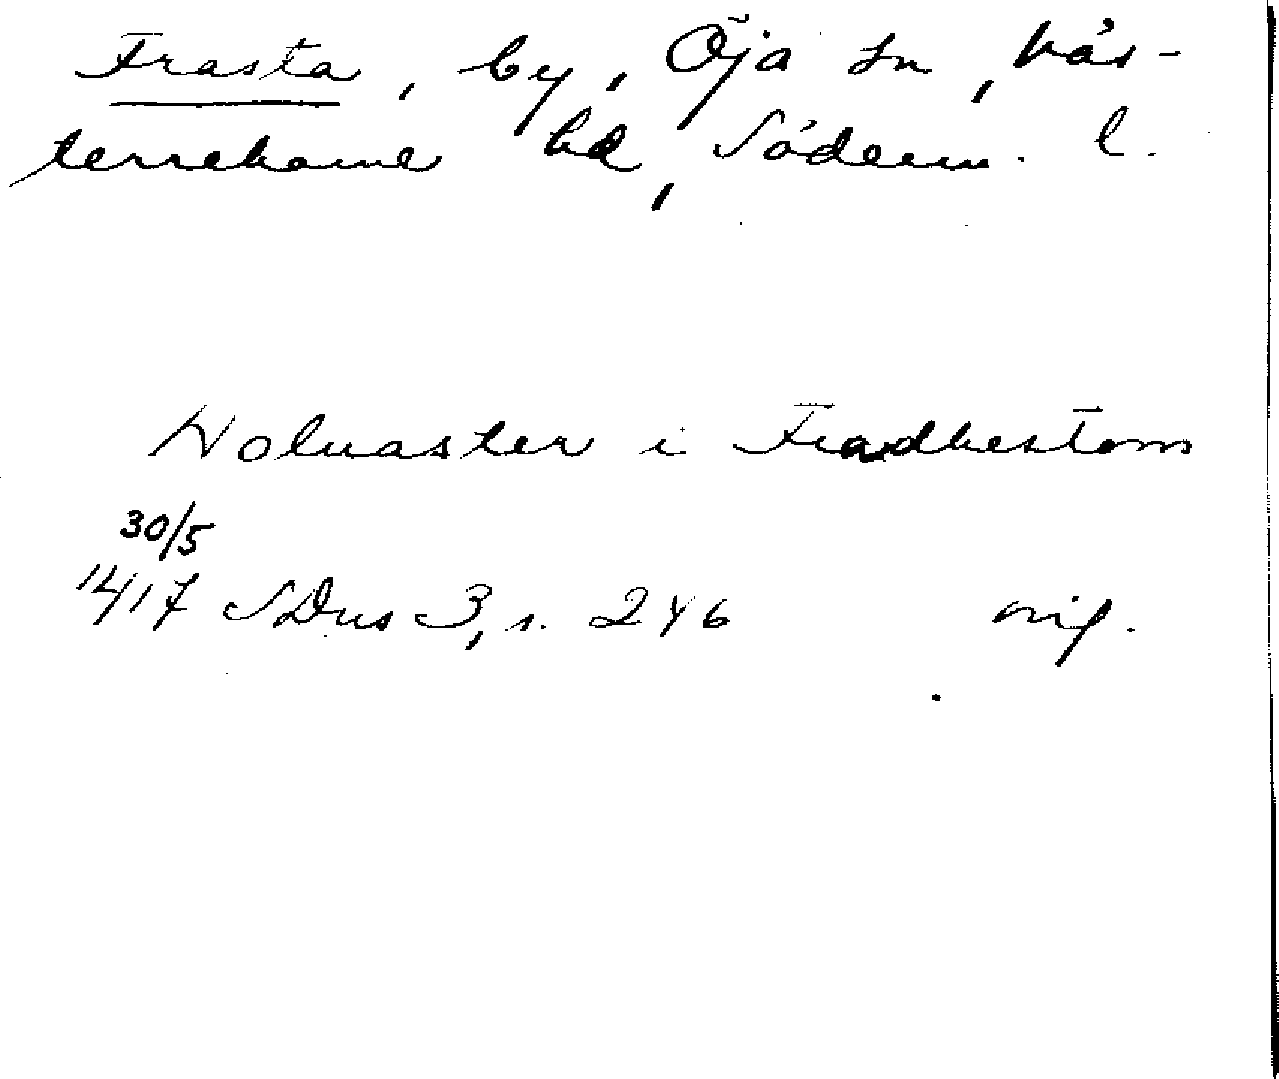 Frasta, by, Öja sn, Väs-
terrekarne hd, Söderm. l.
Holuaster i Fradhestom
30/5
1417 SDns 3, s. 246 orig.